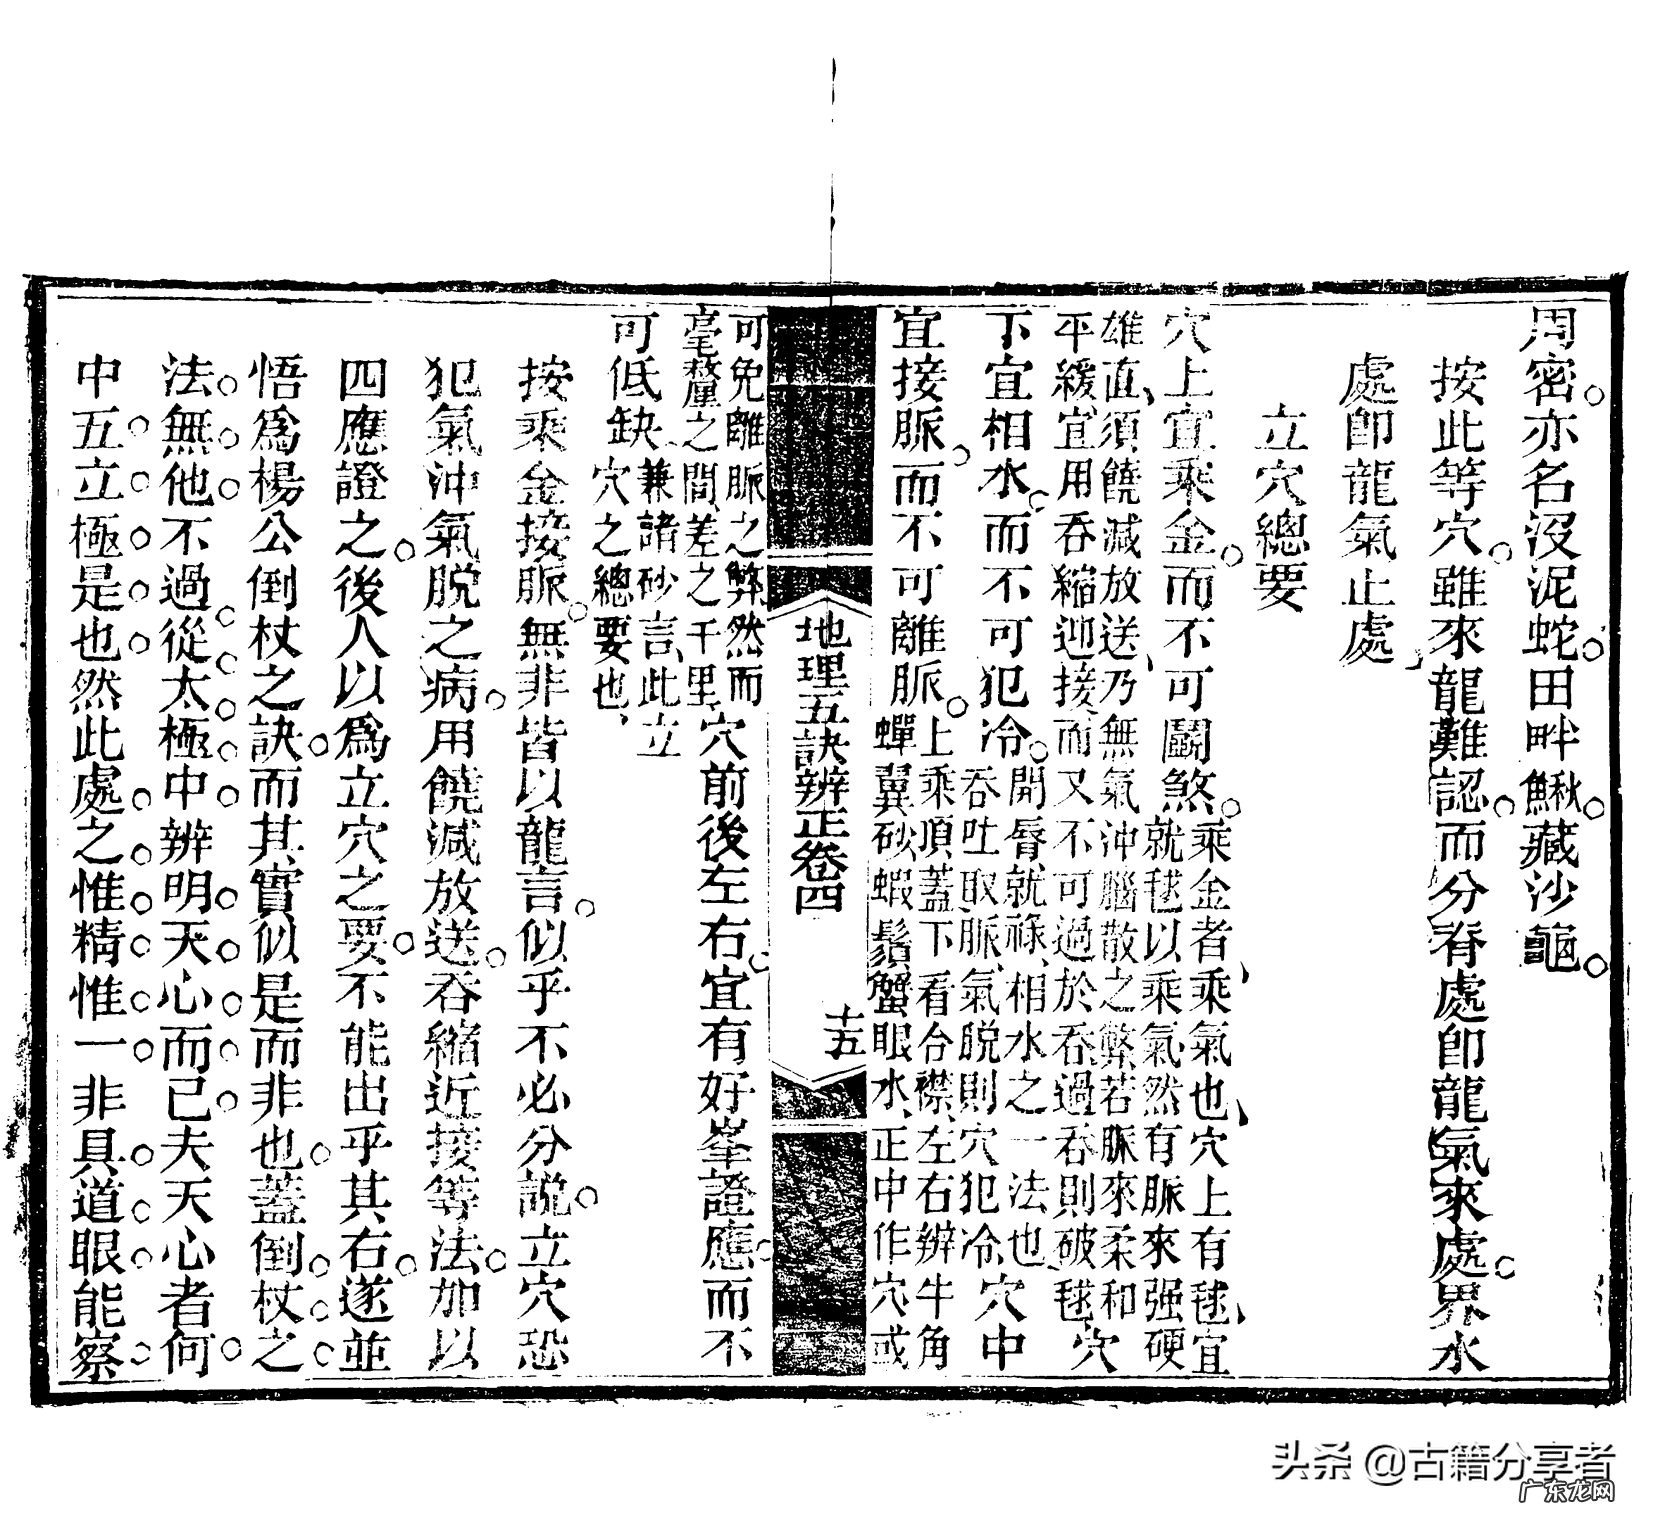 周密亦名沒泥蛇田畔鰍藏沙龜
按此等穴雖來龍難認而分脊處卽龍氣來處界水
處卽龍氣止處
立穴總要
穴上宜乘金而不可鬭煞乘金者乘氣也穴上有毬宜
就毬以乘氣然有脈來强硬
雄直須饒減放送乃無氣沖腦散之弊若脈來柔和
平緩宜用吞縮迎接而又不可過於吞過吞則破毬穴
下宜相水而不可犯冷開脣就祿相水之一法也
吞吐取脈氣脫則穴犯冷穴中
宜接脈而不可離脈上乘頂蓋下看合襟左右辨牛角
蟬翼砂蝦鬚蟹眼水正中作穴或
地理五訣辨正卷四
十五
可免離脈之弊然而
毫釐之間差之千里穴前後左右宜有好峯證應而不
可低缺兼諸砂言此立
穴之總要也
按乘金接脈無非皆以龍言似乎不必分說立穴恐
犯氣沖氣脫之病用饒減放送吞縮近接等法加以
四應證之後人以爲立穴之要不能出乎其右遂並
悟爲楊公倒杖之訣而其實似是而非也蓋倒杖之
法無他不過從太極中辨明天心而已夫天心者何
中五立極是也然此處之惟精惟一非具道眼能察
头条 @古籍分享者
广东龙网